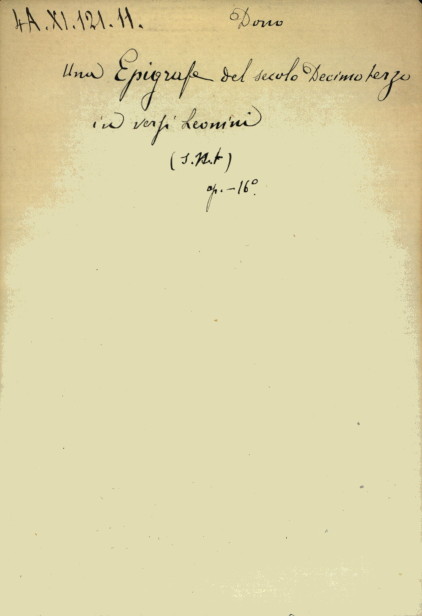 4A.XI.121.11. Dono
Una Epigrafe del secolo Decimoterzo
in versi Leonini
(s.n.t)
op. - 16°.